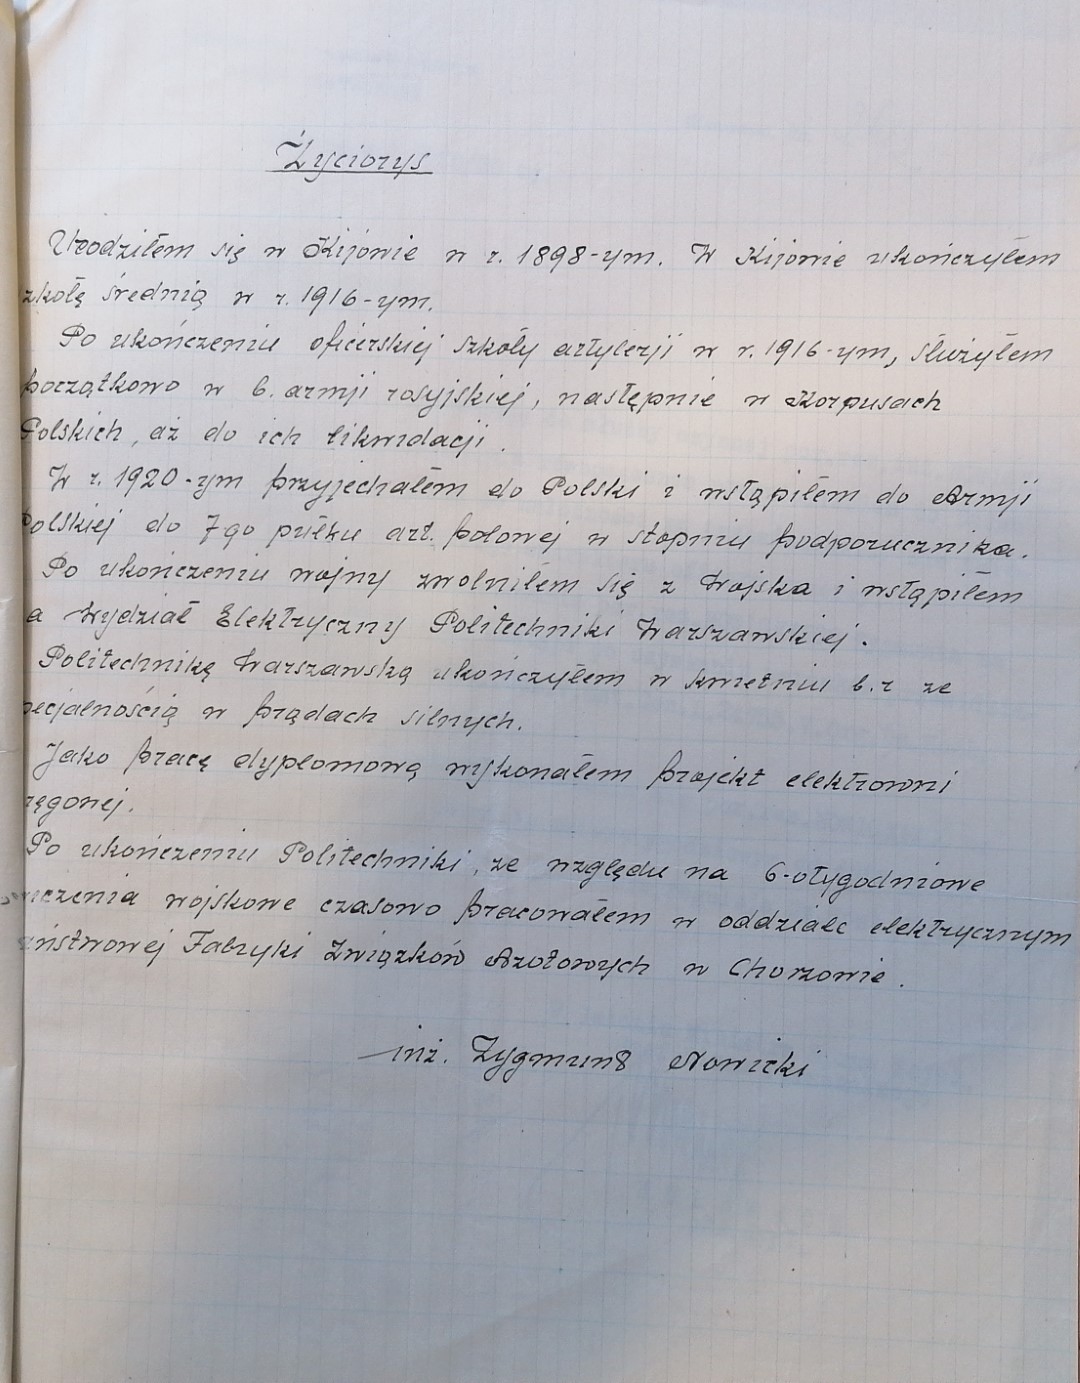 Życiorys
Urodziłem się w Kijowie w r. 1898-ym. W Kijowie ukończyłem
zkołę średnią w r. 1916-ym.
Po ukończeniu oficerskiej szkoły artylerji w r. 1916-ym, służyłem
początkowo w b. armji rosyjskiej, następnie w Korpusach
Polskich, aż do ich likwidacji.
W r. 1920-ym przyjechałem do Polski i wstąpiłem do Armji
Polskiej do 7go pułku art. polowej w stopniu podporucznika.
Po ukończeniu wojny zwolniłem się z Wojska i wstąpiłem
a Wydział Elektryczny Politechniki Warszawskiej.
Politechnikę Warszawską ukończyłem w kwietniu b.r ze
pecjalnością w prądach silnych.
Jako pracę dyplomową wykonałem projekt elektrowni
ręgowej.
Po ukończeniu Politechniki, ze względu na 6-otygodniowe
wiczenia wojskowe czasowo pracowałem w oddziale elektrycznym
aństwowej Fabryki Związków Azotowych w Chorzowie.
inż. Zygmunt Nowicki